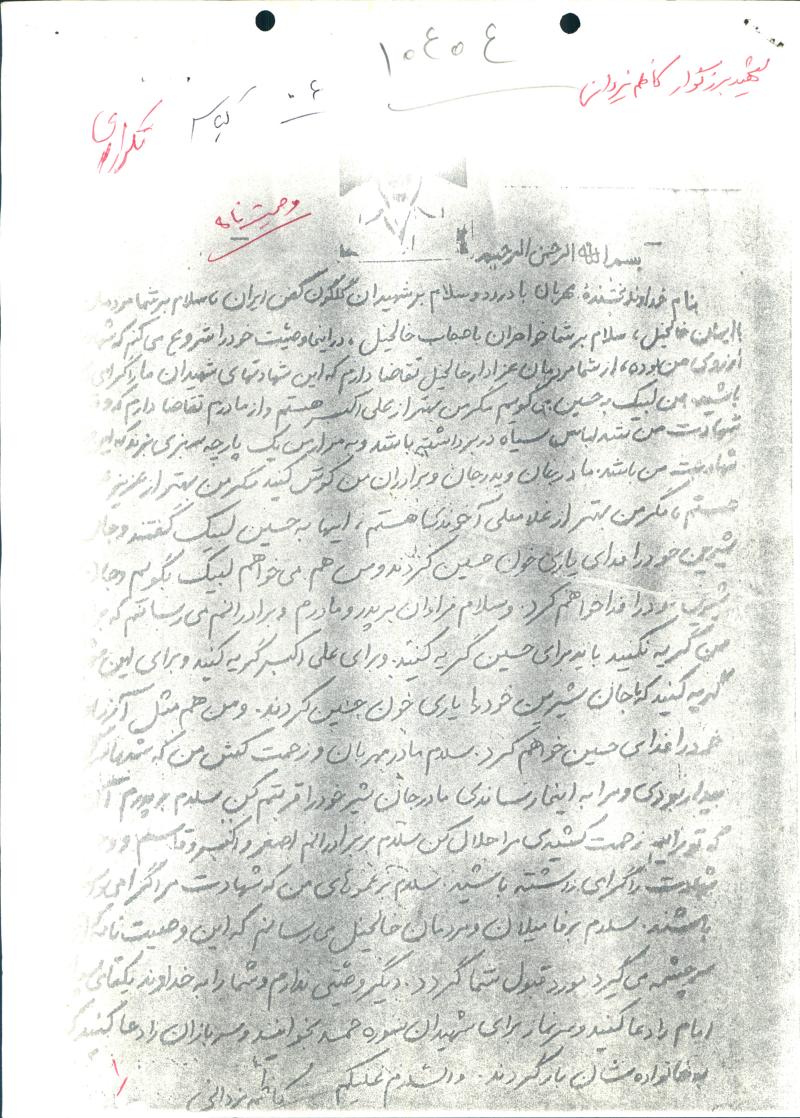 ۱۰۴۰۴
شهید بزرگوار کاظم یزدانی
۰۶
تکراری
وصیت نامه
بسم الله الرحمن الرحیم
بنام خداوند بخشندهٔ مهربان با درود و سلام بر شهیدان گلگون کفن ایران با سلام بر شما مردمان
با ایمان خالخیل، سلام بر شما خواهران با حجاب خالخیل، در اینجا وصیت خود را شروع می کنم که
آرزوی من بوده، از شما مردمان عزادار خالخیل تقاضا دارم که این شهادتهای شهیدان ما را گرامی
باشید. من لبیک به حسین می گویم مگر من بهتر از علی اکبر هستم و از مادرم تقاضا دارم که
شهادت من نشد لباس سیاه در بر داشته باشد و به مزار من یک پارچه سبزی بزند که این
شهادت من باشد. مادر جان و پدر جان و برادران من گوش کنید مگر من بهتر از عزیز
هستم، مگر من بهتر از غلامعلی آخوندی هستم، اینها به حسین لبیک گفتند و جان
شیرین خود را فدای یاری خون حسین کردند و من هم می خواهم لبیک بگویم و جان
شیرین خود را فدا خواهم کرد. و سلام فراوان بر پدر و مادرم و برادرانم می رسانم که
من گریه نکنید باید برای حسین گریه کنید. و برای علی اکبر گریه کنید و برای این
گریه کنید که با جان شیرین خود را یاری خون حسین کردند. و من هم مثل
خود را فدای حسین خواهم کرد. سلام مادر مهربان و زحمت کش من که شبها
بیدار بودی و مرا به اینجا رساندی مادر جان شیر خود را قربتم کن سلام بر پدرم
که تو برایم زحمت کشیدی مرا حلال کن سلام بر برادرانم اصغر و اکبر و قاسم و
شهادت را گرامی داشته باشید. سلام بر عموهای من که شهادت مرا گرامی
باشند. سلام بر فامیلان و مردمان خالخیل می رسانم که این وصیت نامه
سرچشمه می گیرد مورد قبول شما گردد. دیگر وصیتی ندارم و شما را به خداوند یکتا
امام را دعا کنید و سر نماز برای شهیدان سوره حمد بخوانید و سربازان را دعا کنید
به خانواده شان بازگردند. والسلام علیکم
کاظم یزدانی
۱